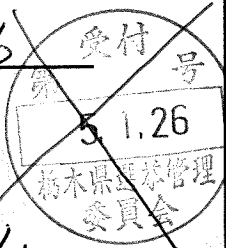 受付
第 号
5. 1.26
栃木県選挙管理
委員会